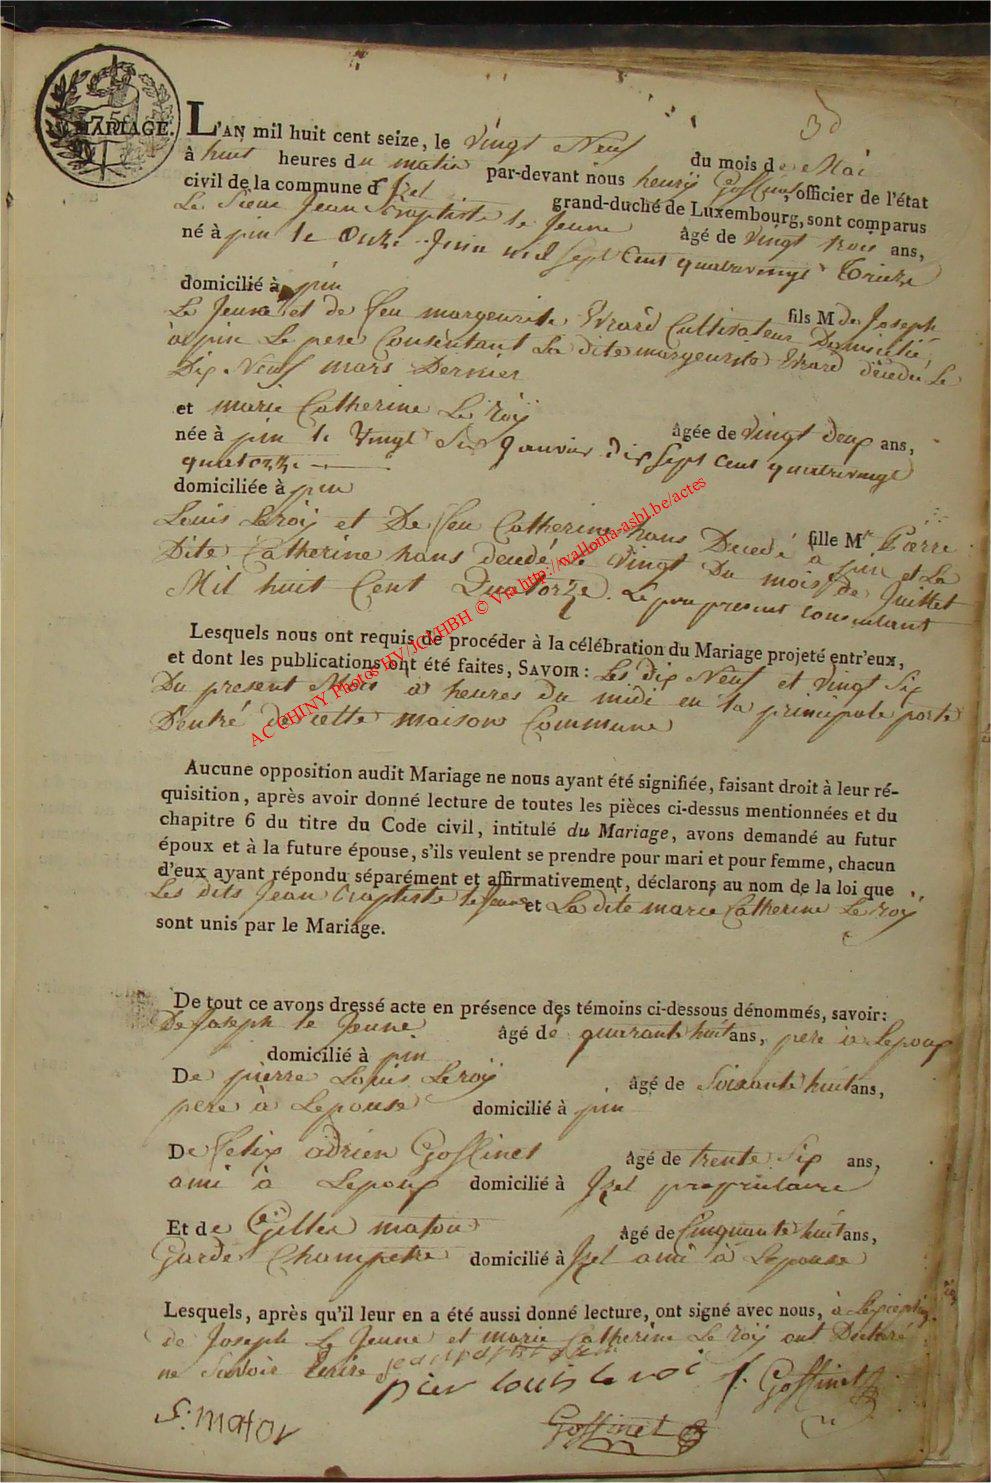 MARIAGE.
L'AN mil huit cent seize, le vingt Neuf du mois de Mai
à huit heures du matin par-devant nous henry Goffinet, officier de l'état
civil de la commune d'Izel grand-duché de Luxembourg, sont comparus
Le Sieur Jean Baptiste le Jeune âgé de vingt trois ans,
né à pin le Onze Juin mil sept Cent quatrevingt Treize
domicilié à pin
fils M de Joseph
Le Jeune et de feu margeurite Evrard Cultivateur Domicilié
à pin Le pere Consentant La dite margeurite Evrard décedée Le
Dix Neuf mars Dernier
et marie Catherine Le Roÿ âgée de vingt deux ans,
née à pin le Vingt Six Janvier dix Sept Cent quatrevingt
quatorze
domiciliée à pin
fille Mr Pierre
Louis Leroÿ et De feu Catherine hans Decedé à pin et La
Dite Catherine hans decedé le Vingt Du mois de Juillet
Mil huit Cent Quatorze. Le pere present consentant
Lesquels nous ont requis de procéder à la célébration du Mariage projeté entr'eux,
et dont les publications ont été faites, SAVOIR: Les dix Neuf et Vingt Six
Du present Mois à heures du midi en la principale porte
D'entré de cette maison Commune
Aucune opposition audit Mariage ne nous ayant été signifiée, faisant droit à leur ré-
quisition, après avoir donné lecture de toutes les pièces ci-dessus mentionnées et du
chapitre 6 du titre du Code civil, intitulé du Mariage, avons demandé au futur
époux et à la future épouse, s'ils veulent se prendre pour mari et pour femme, chacun
d'eux ayant répondu séparément et affirmativement, déclarons au nom de la loi que
Les dits Jean Baptiste le Jeune et La dite marie Catherine Le Roÿ
sont unis par le Mariage.
De tout ce avons dressé acte en présence des témoins ci-dessous dénommés, savoir:
De Joseph le Jeune âgé de quarante huit ans, pere à Lepoux
domicilié à pin
De pierre Louis Leroÿ âgé de Soixante huit ans,
pere à Lepouse domicilié à pin
De felix adrien Goffinet âgé de trente Six ans,
ami à Lepoux domicilié à Izel proprietaire
Et de Gilles maton âgé de Cinquante huit ans,
Garde Champetre domicilié à Izel ami à Lepouse
Lesquels, après qu'il leur en a été aussi donné lecture, ont signé avec nous, à Lexception
de Joseph Le Jeune et marie Catherine Le roÿ ont Declaré
ne Savoir Ecrire
pier louis le roi f. Goffinet
Goffinet
AC CHINY Photos HV/JCVHBH © Via http://wallonia-asbl.be/actes